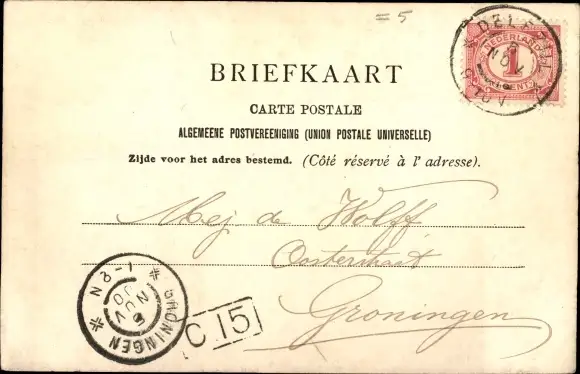 = 5
DELFZIJL
NOV
NEDERLAND
1
CENT
BRIEFKAART
CARTE POSTALE
ALGEMEENE POSTVEREENIGING (UNION POSTALE UNIVERSELLE)
Zijde voor het adres bestemd. (Côté réservé à l' adresse).
Mej de Wolff
Oosterstraat
Groningen
GRONINGEN
NOV
N 8-1
C 15